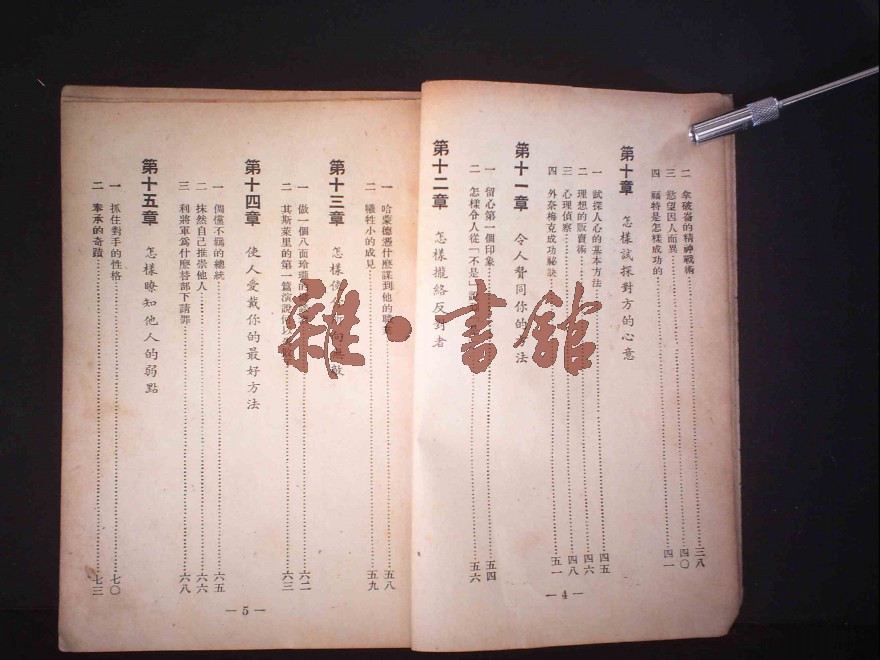 二 拿破崙的精神戰術 三八
三 慾望因人而異 四〇
四 福特是怎樣成功的 四一
第十章 怎樣試探對方的心意
一 試探人心的基本方法 四五
二 理想的販賣術 四六
三 心理偵察 四八
四 外奈梅克成功祕訣 五一
第十一章 令人贊同你的 法
一 留心第一個印象 五四
二 怎樣令人從「不是」說 五六
第十二章 怎樣攏絡反對者
— 4 —
一 哈蒙德憑什麼謀到他的職 五八
二 犧牲小的成見 五九
第十三章 怎樣使 向無敵
一 做一個八面玲瓏的 六二
二 其斯萊里的第一篇演說何以 六三
第十四章 使人愛戴你的最好方法
一 倜儻不羈的總統 六五
二 抹然自己推崇他人 六六
三 利將軍爲什麼替部下請罪 六八
第十五章 怎樣瞭知他人的弱點
一 抓住對手的性格 七〇
二 奉承的奇蹟 七三
— 5 —
雜·書館